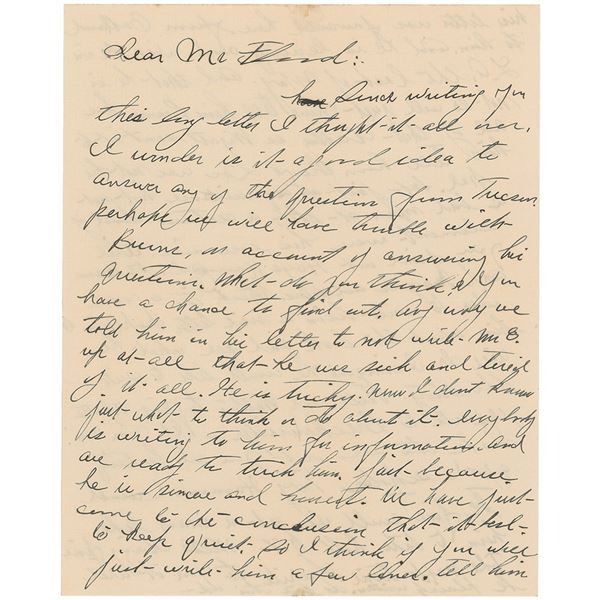 Dear Mr Flood:
have Since writing you
this long letter I thought it all over.
I wonder is it a good idea to
answer any of the question from Tucson.
perhaps we will have trouble with
Burns, on account of answering his
questions. what do you think, & you
have a chance to find out. Any way we
told him in his letter to not write Mr E.
up at all that he was sick and tired
of it all. He is tricky. now I dont know
just what to think or do about it. everybody
is writing to him for information. and
are ready to trick him. just because
he is sincere and honest. We have just
come to the conclusion that it best
to keep quiet. so I think if you will
just write him a few lines. tell him